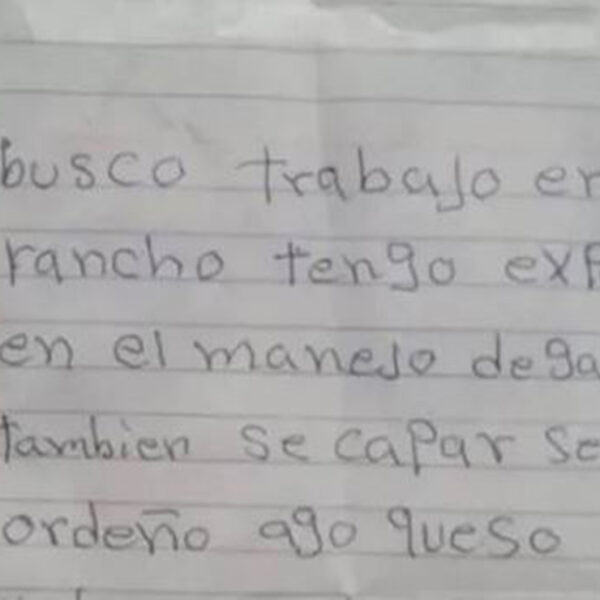 busco trabajo en
rancho tengo exp
en el manejo de ga
tambien se capar se
ordeño ago queso